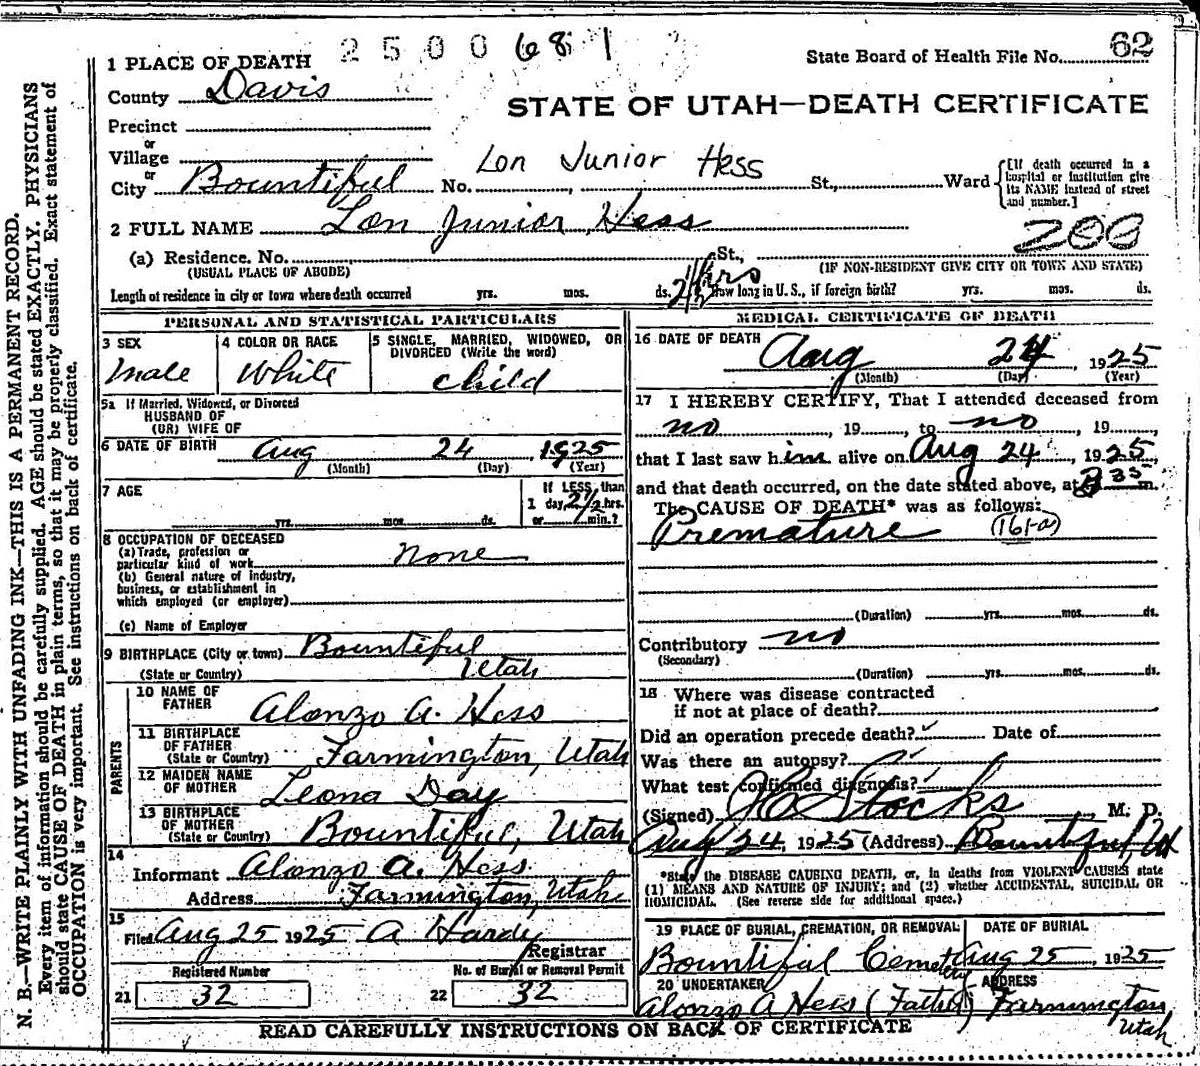 2500681
State Board of Health File No. 62
1 PLACE OF DEATH
County Davis
STATE OF UTAH—DEATH CERTIFICATE
Precinct
or
Village
Lon Junior Hess
or
City Bountiful No. , St., Ward
[If death occurred in a hospital or institution give its NAME instead of street and number.]
2 FULL NAME Lon Junior Hess
200
(a) Residence. No. St.,
(USUAL PLACE OF ABODE) (IF NON-RESIDENT GIVE CITY OR TOWN AND STATE)
Length of residence in city or town where death occurred yrs. mos. ds. 2 1/2 hrs How long in U.S., if foreign birth? yrs. mos. ds.
PERSONAL AND STATISTICAL PARTICULARS
3 SEX
Male
4 COLOR OR RACE
White
5 SINGLE, MARRIED, WIDOWED, OR DIVORCED (Write the word)
child
5a If Married, Widowed, or Divorced
HUSBAND OF
(OR) WIFE OF
6 DATE OF BIRTH Aug 24 1925
(Month) (Day) (Year)
7 AGE
yrs. mos. ds.
If LESS than
1 day, 2 1/2 hrs.
or min.?
8 OCCUPATION OF DECEASED
(a) Trade, profession or
particular kind of work none
(b) General nature of industry,
business, or establishment in
which employed (or employer)
(c) Name of Employer
9 BIRTHPLACE (City or town) Bountiful
(State or Country) Utah
PARENTS
10 NAME OF
FATHER Alonzo A. Hess
11 BIRTHPLACE
OF FATHER
(State or Country) Farmington, Utah
12 MAIDEN NAME
OF MOTHER Leona Day
13 BIRTHPLACE
OF MOTHER
(State or Country) Bountiful, Utah
14
Informant Alonzo A. Hess
Address Farmington, Utah
15
Filed Aug 25 1925 A Hardy
Registrar
Registered Number No. of Burial or Removal Permit
21 32 22 32
MEDICAL CERTIFICATE OF DEATH
16 DATE OF DEATH
Aug 24, 1925
(Month) (Day) (Year)
17 I HEREBY CERTIFY, That I attended deceased from
no, 19, to no, 19,
that I last saw him alive on Aug 24, 1925,
and that death occurred, on the date stated above, at 3 35 m.
The CAUSE OF DEATH* was as follows:
Premature (161-a)
(Duration) yrs. mos. ds.
Contributory no
(Secondary)
(Duration) yrs. mos. ds.
18 Where was disease contracted
if not at place of death?
Did an operation precede death? Date of
Was there an autopsy?
What test confirmed diagnosis?
(Signed) J C Stocks M. D.
Aug 24, 1925 (Address) Bountiful, Ut
*State the DISEASE CAUSING DEATH, or, in deaths from VIOLENT CAUSES state
(1) MEANS AND NATURE OF INJURY; and (2) whether ACCIDENTAL, SUICIDAL OR
HOMICIDAL. (See reverse side for additional space.)
19 PLACE OF BURIAL, CREMATION, OR REMOVAL DATE OF BURIAL
Bountiful Cemetery Aug 25, 1925
20 UNDERTAKER ADDRESS
Alonzo A Hess (Father) Farmington
Utah
READ CAREFULLY INSTRUCTIONS ON BACK OF CERTIFICATE
N. B.—WRITE PLAINLY WITH UNFADING INK—THIS IS A PERMANENT RECORD.
Every item of information should be carefully supplied. AGE should be stated EXACTLY. PHYSICIANS
should state CAUSE OF DEATH in plain terms, so that it may be properly classified. Exact statement of
OCCUPATION is very important. See instructions on back of certificate.